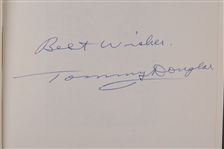 Best Wishes.
Tommy Douglas